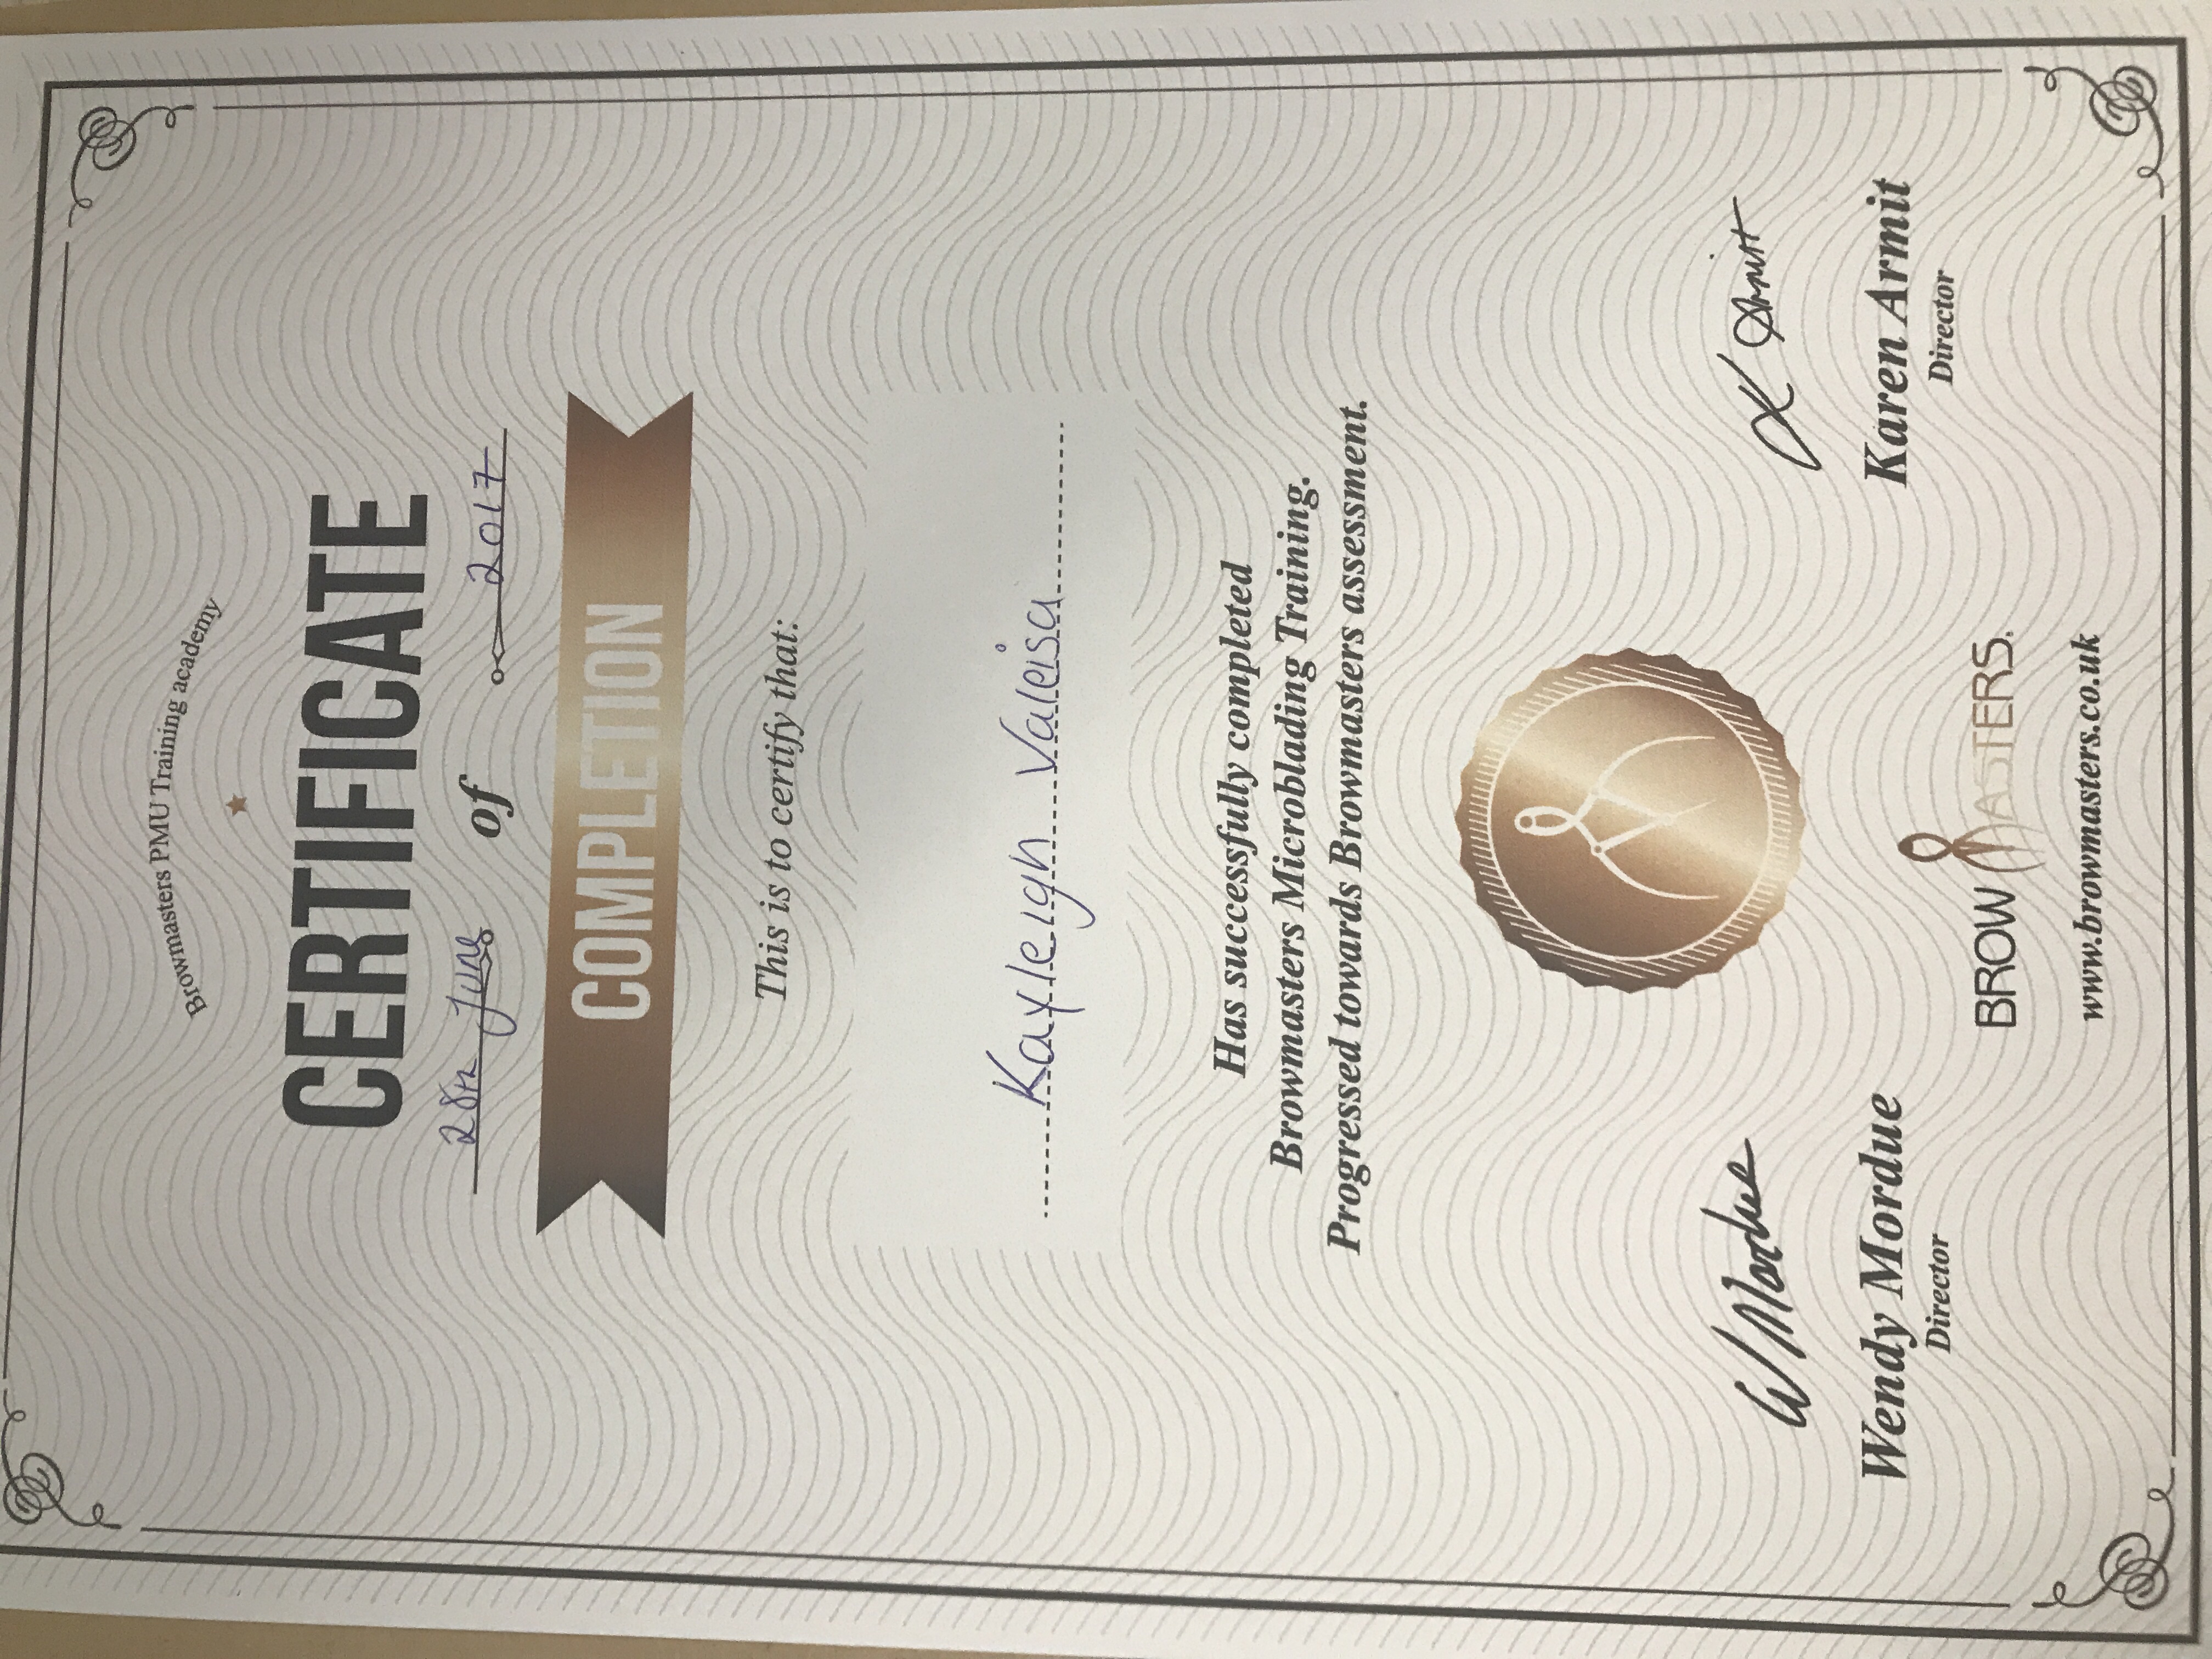 Browmasters PMU Training academy
CERTIFICATE
28th June of 2017
COMPLETION
This is to certify that:
Kayleigh Valeisa
Has successfully completed
Browmasters Microblading Training.
Progressed towards Browmasters assessment.
W Mordue
K Armitt
Wendy Mordue
Karen Armit
Director
Director
BROWMASTERS.
www.browmasters.co.uk